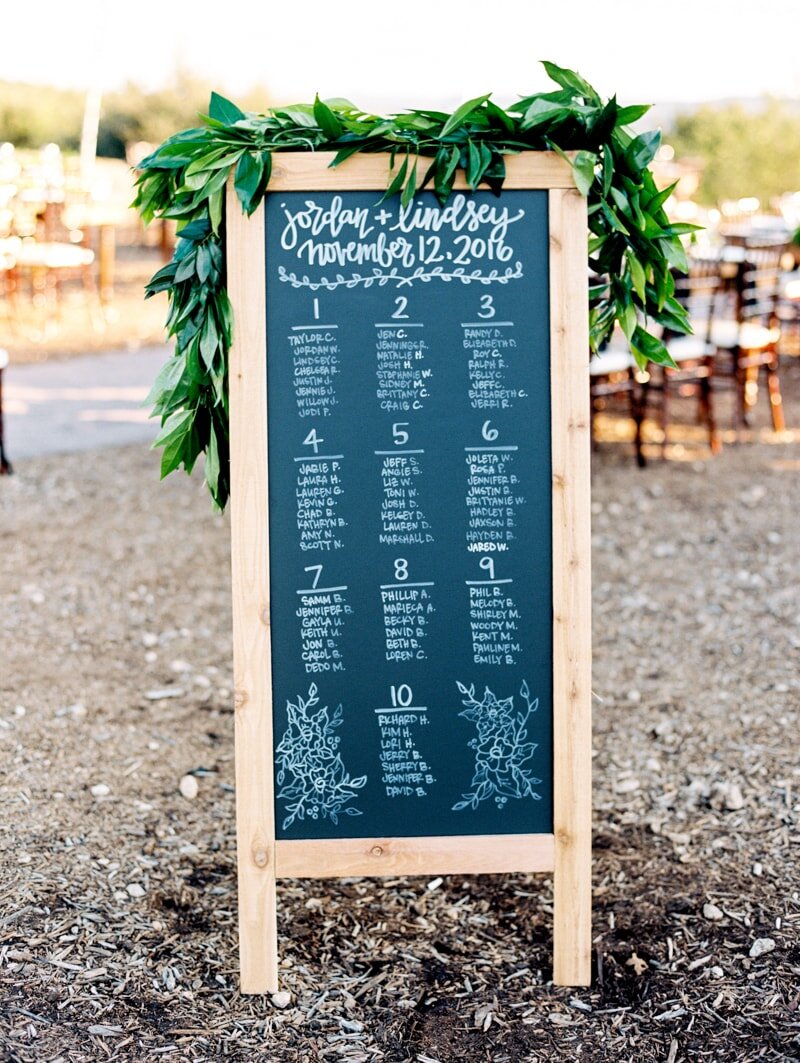 jordan + lindsey
november 12. 2016
1
TAYLOR C.
JORDAN W.
LINDSEY C.
CHELSEA R.
JUSTIN J.
JENNIE J.
WILLOW J.
JODI P.
2
JEN C.
JENNINGER.
NATALIE H.
JOSH H.
STEPHANIE W.
SIDNEY M.
BRITTANY C.
CRAIG C.
3
RANDY D.
ELIZABETH D.
ROY C.
RALPH R.
KELLY C.
JEFF C.
ELIZABETH C.
JERRI R.
4
JABIE P.
LAURA H.
LAUREN G.
KEVIN G.
CHAD B.
KATHRYN B.
AMY N.
SCOTT N.
5
JEFF S.
ANGIE S.
LIZ W.
TONI W.
JOSH D.
KELSEY D.
LAUREN D.
MARSHALL D.
6
JOLETA W.
ROSA P.
JENNIFER B.
JUSTIN B.
BRITTANIE W.
HADLEY B.
JAXSON B.
HAYDEN B.
JARED W.
7
SAMM B.
JENNIFER B.
GAYLA U.
KEITH U.
JON B.
CAROL B.
DEDO M.
8
PHILLIP A.
MARIECA A.
BECKY B.
DAVID B.
BETH B.
LOREN C.
9
PHIL B.
MELODY B.
SHIRLEY M.
WOODY M.
KENT M.
PAULINE M.
EMILY B.
10
RICHARD H.
KIM H.
LORI H.
JERRY B.
SHERRY B.
JENNIFER B.
DAVID B.